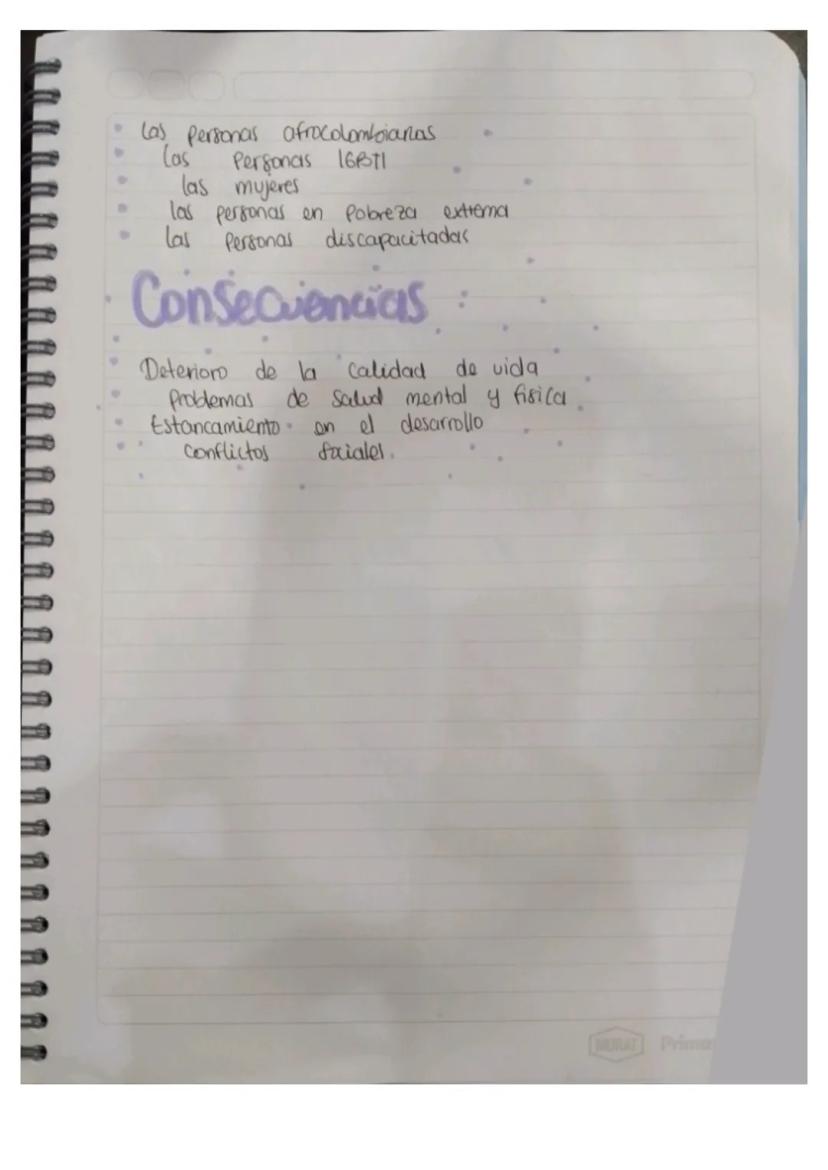 Las personas afrocolombianas
Las personas LGBTI
las mujeres
las personas en pobreza extrema
las personas discapacitadas
Consecuencias :
Deterioro de la calidad de vida
problemas de salud mental y fisica.
Estancamiento en el desarrollo
conflictos sociales.
NORMA Prima